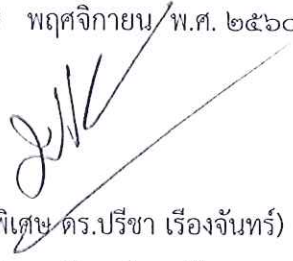 พฤศจิกายน พ.ศ. ๒๕๖๐
พิเศษ ดร.ปรีชา เรืองจันทร์)